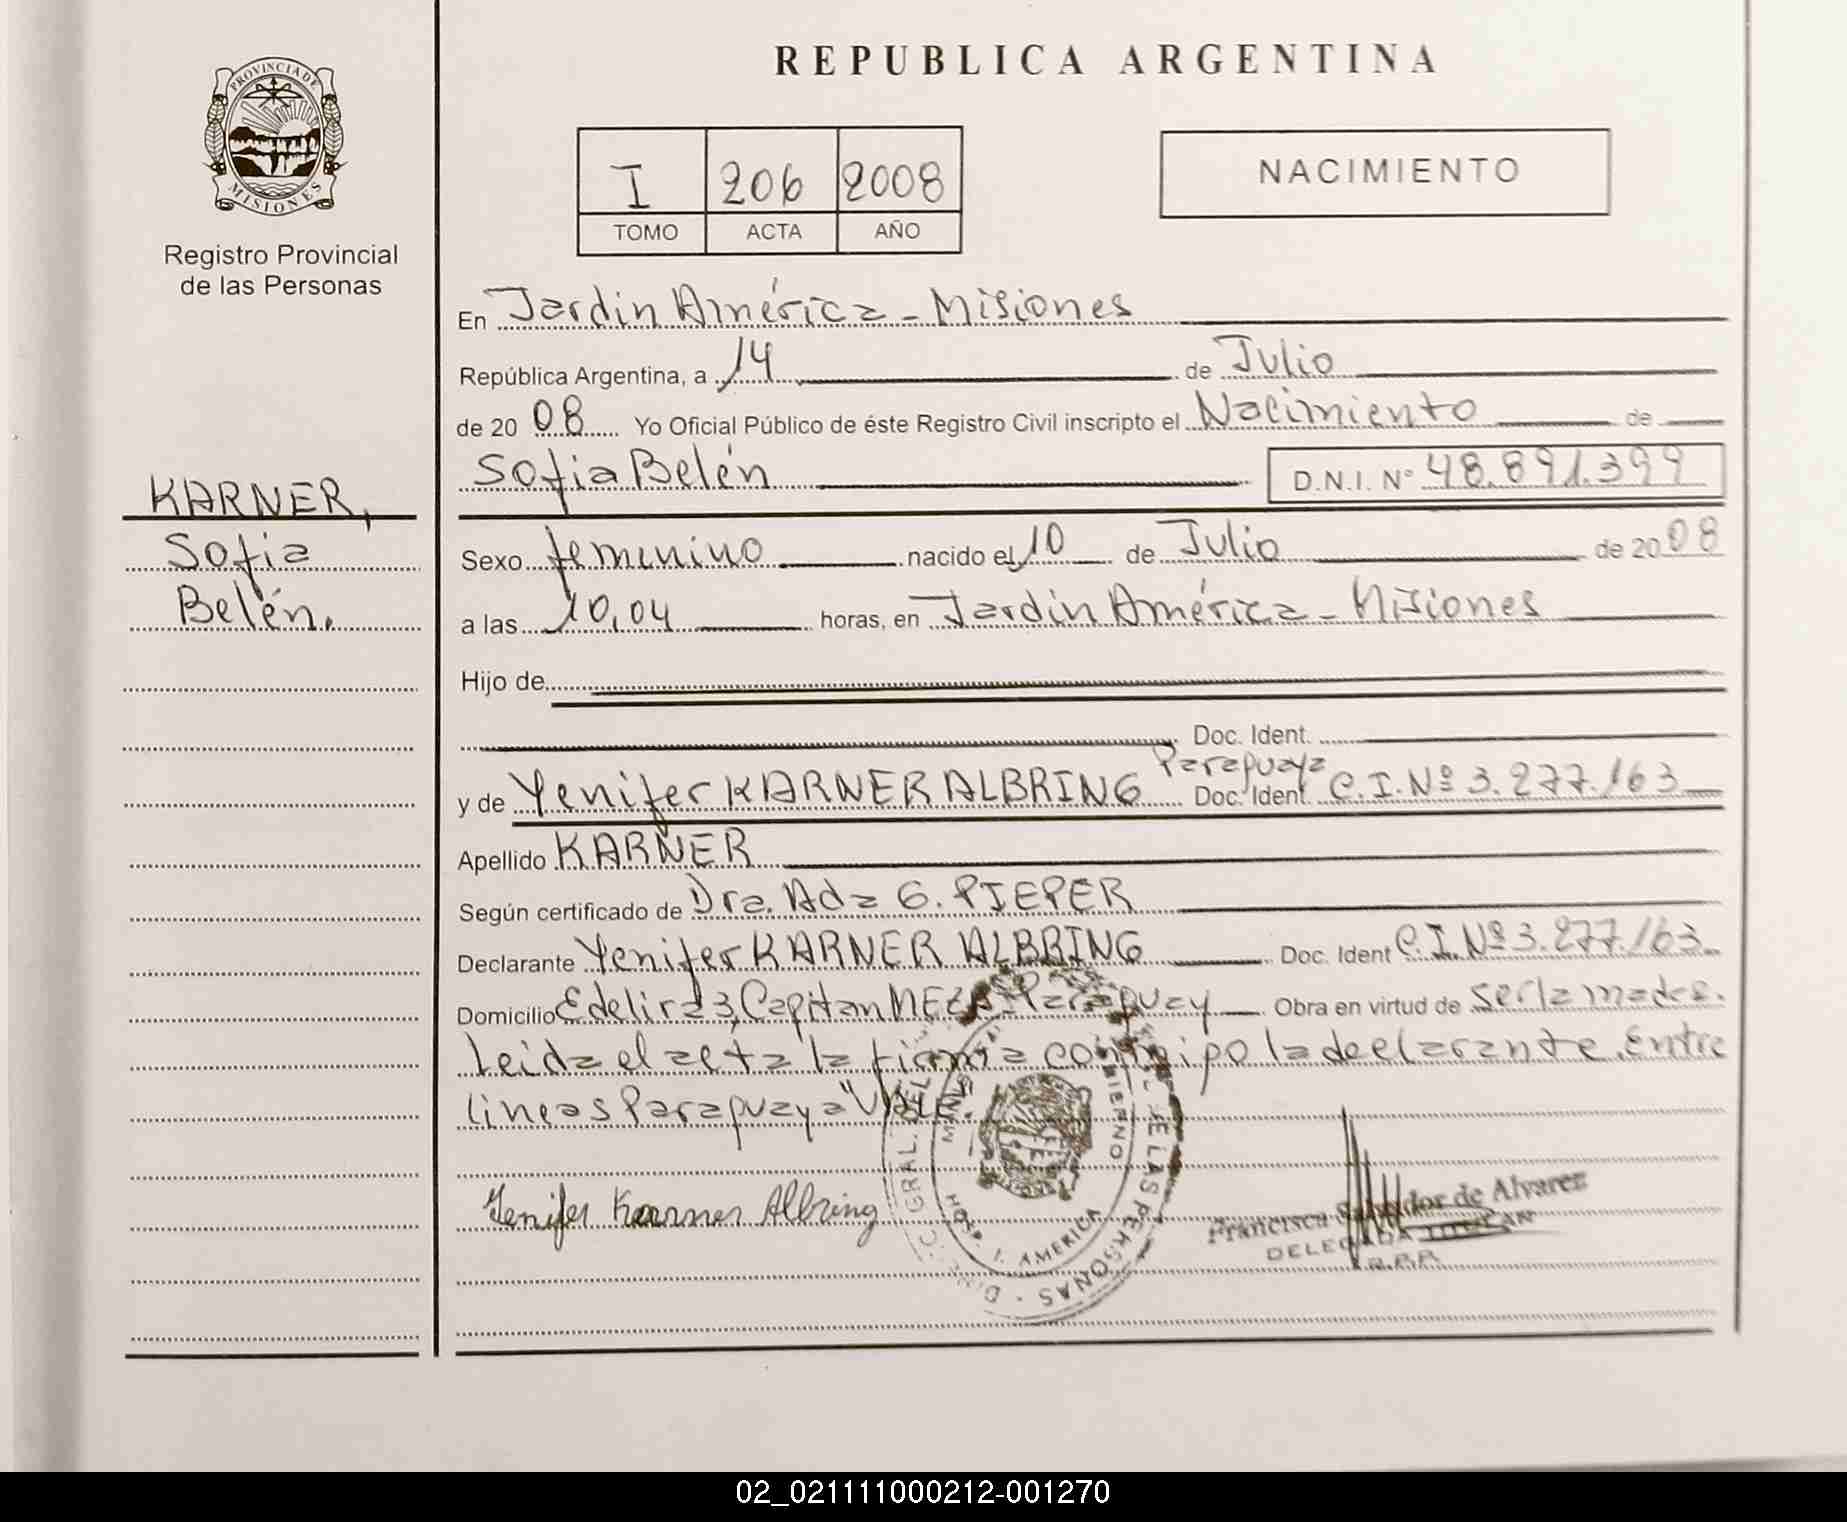 REPUBLICA ARGENTINA
PROVINCIA DE
MISIONES
Registro Provincial
de las Personas
I 206 2008
TOMO ACTA AÑO
NACIMIENTO
En Jardín América - Misiones
República Argentina, a 14 de Julio
de 20 08 Yo Oficial Público de éste Registro Civil inscripto el Nacimiento de
Sofia Belén D.N.I. N° 48.891.399
KARNER,
Sofia
Belén.
Sexo femenino nacido el 10 de Julio de 20 08
a las 10,04 horas, en Jardín América - Misiones
Hijo de
Doc. Ident.
Paraguaya
y de Yenifer KARNER ALBRING Doc. Ident. C.I. Nº 3.277.163
Apellido KARNER
Según certificado de Dra. Ada G. PIEPER
Declarante Yenifer KARNER ALBRING Doc. Ident C.I. Nº 3.277.163
Domicilio Edelira 3, Capitan MEZA Paraguay Obra en virtud de ser la madre.
Leida el acta la firma conmigo la declarante. Entre
lineas Paraguaya "VALE
Yenifer Karner Albring
GRAL. DE LAS PERSONAS
AMERICA
Francisca Salvador de Alvarez
DELEGADA TITULAR
R.P.P.
02_021111000212-001270